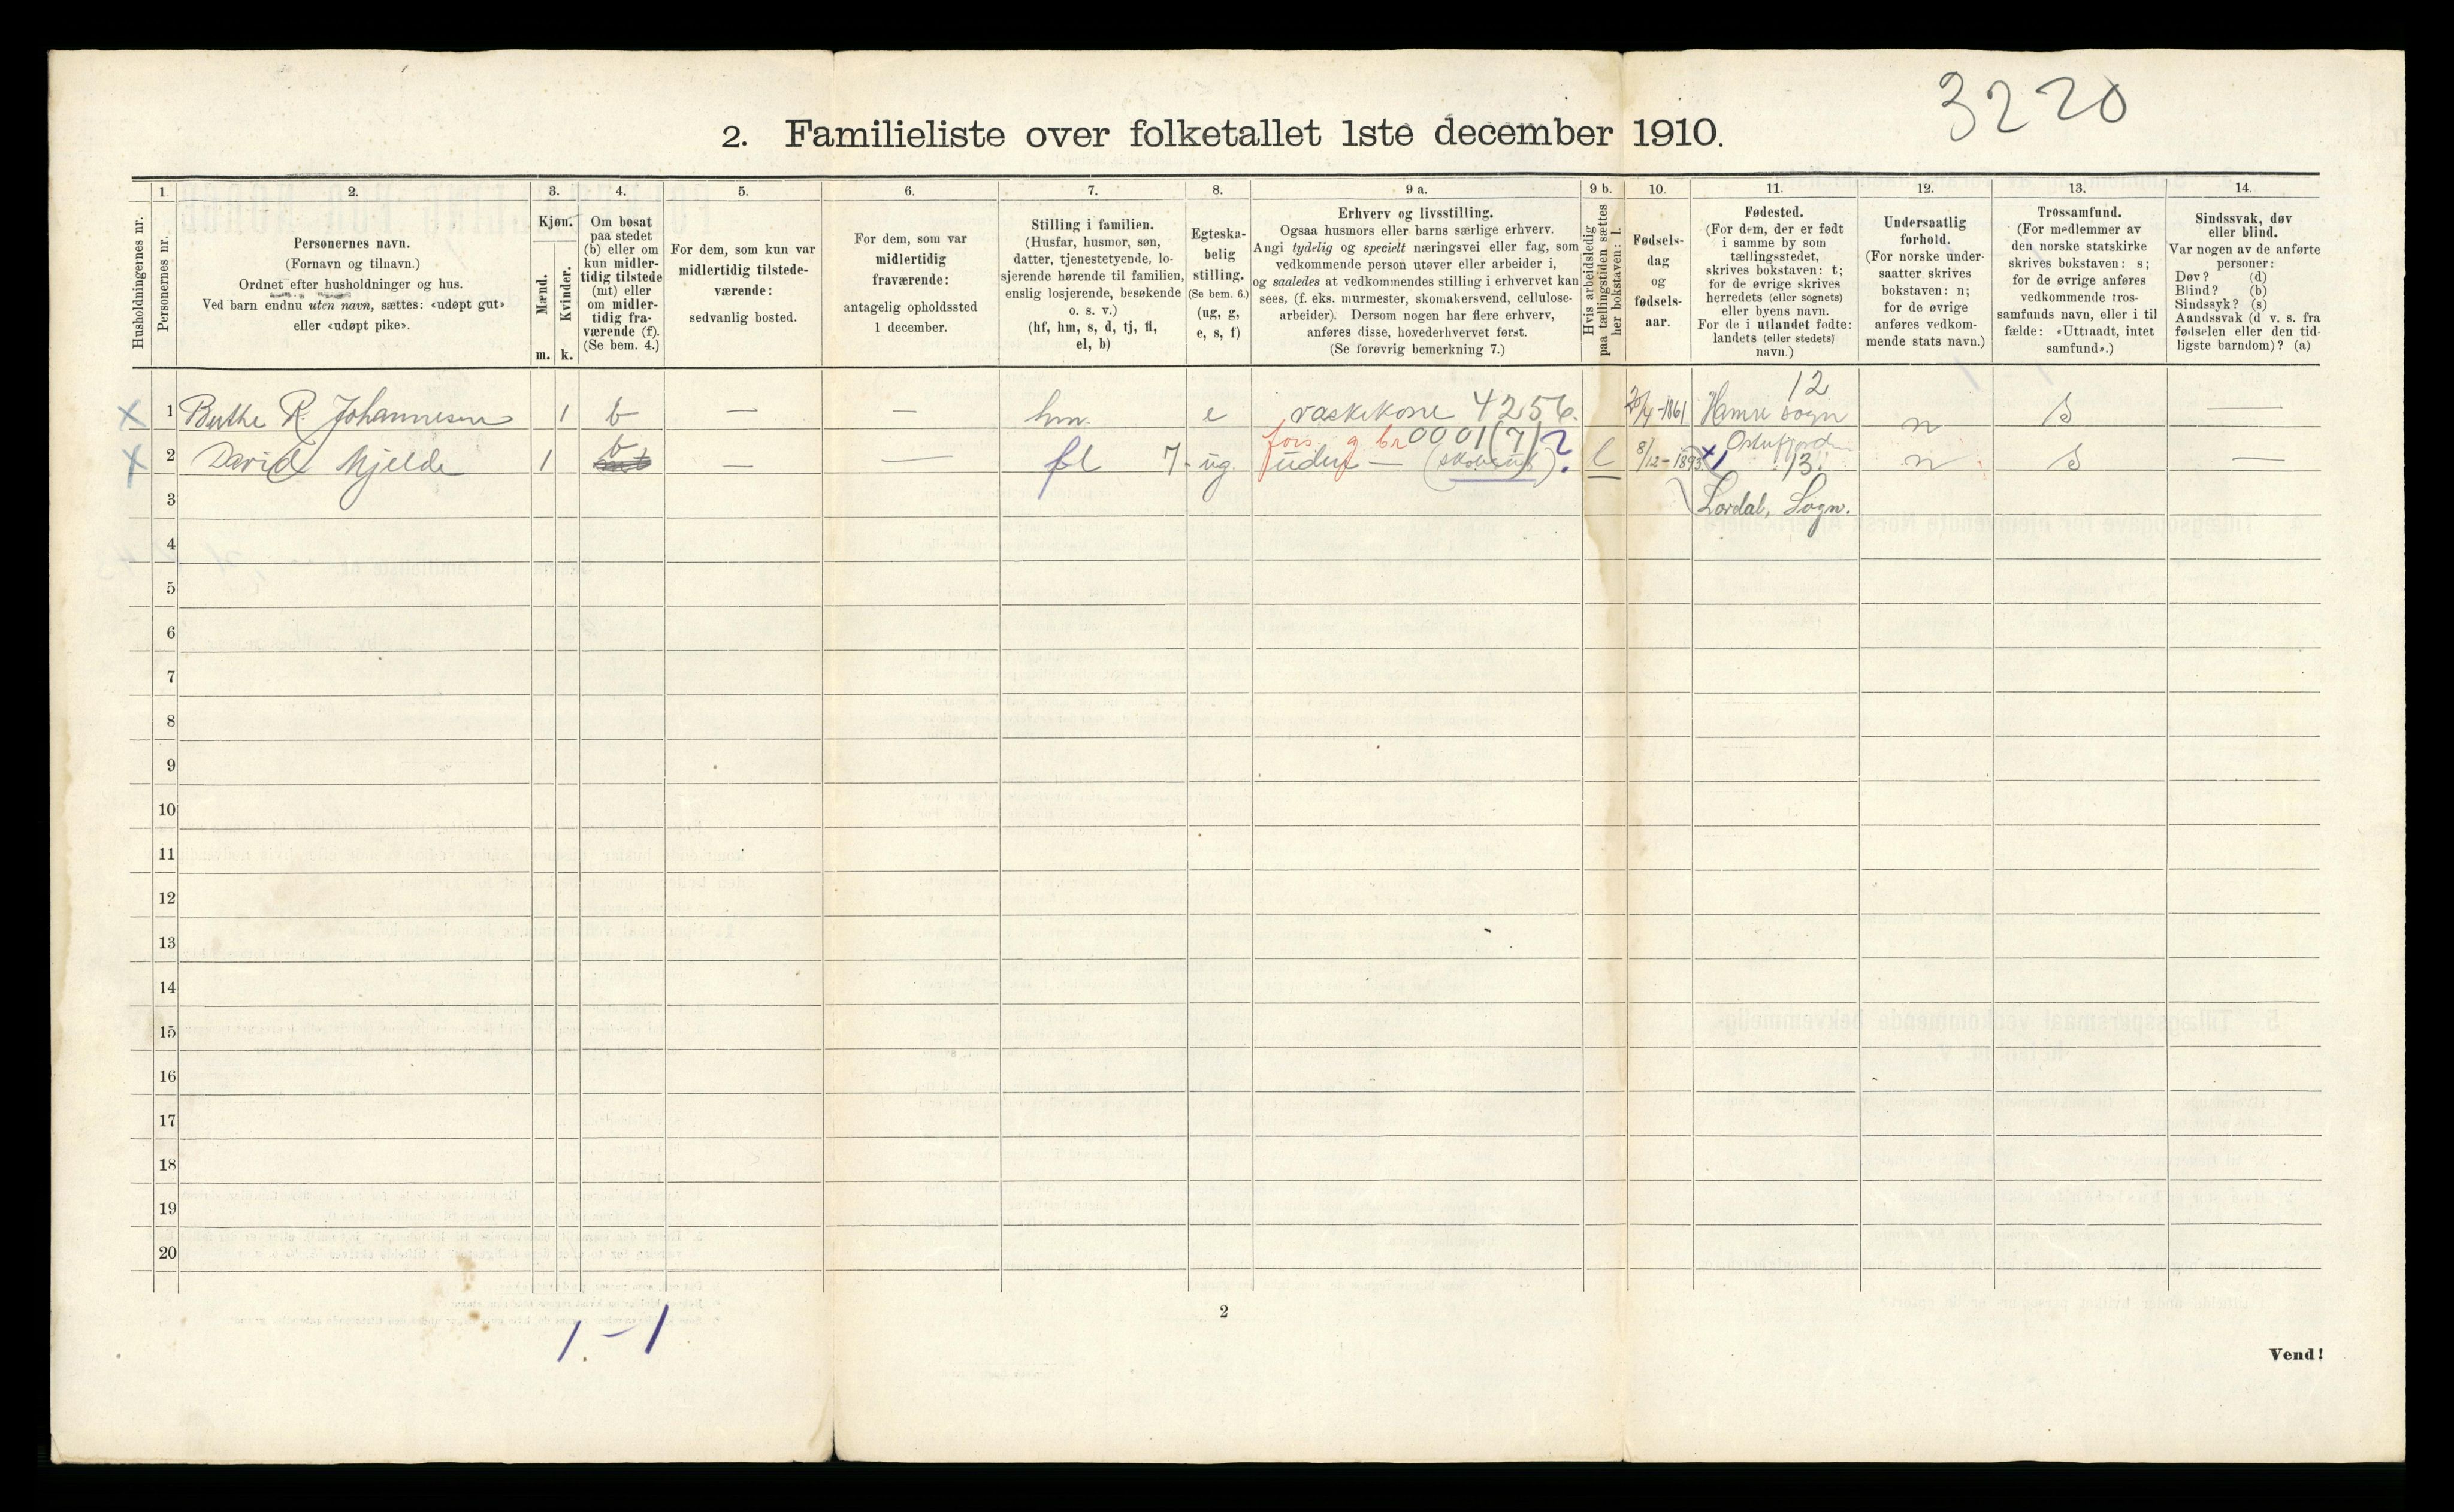 3220
2. Familieliste over folketallet 1ste december 1910.
1 2. 3. 4. 5. 6. 7. 8. 9 a. 9 b. 10. 11. 12. 13. 14.
Husholdningernes nr.
Personernes nr.
Personernes navn.
(Fornavn og tilnavn.)
Ordnet efter husholdninger og hus.
Ved barn endnu uten navn, sættes: «udøpt gut»
eller «udøpt pike».
Kjøn.
Mænd.
Kvinder.
m. k.
Om bosat
paa stedet
(b) eller om
kun midler-
tidig tilstede
(mt) eller
om midler-
tidig fra-
værende (f).
(Se bem. 4.)
For dem, som kun var
midlertidig tilstede-
værende:
sedvanlig bosted.
For dem, som var
midlertidig
fraværende:
antagelig opholdssted
1 december.
Stilling i familien.
(Husfar, husmor, søn,
datter, tjenestetyende, lo-
sjerende hørende til familien,
enslig losjerende, besøkende
o. s. v.)
(hf, hm, s, d, tj, fl,
el, b)
Egteska-
belig
stilling.
(Se bem. 6.)
(ug, g,
e, s, f)
Erhverv og livsstilling.
Ogsaa husmors eller barns særlige erhverv.
Angi tydelig og specielt næringsvei eller fag, som
vedkommende person utøver eller arbeider i,
og saaledes at vedkommendes stilling i erhvervet kan
sees, (f. eks. murmester, skomakersvend, cellulose-
arbeider). Dersom nogen har flere erhverv,
anføres disse, hovederhvervet først.
(Se forøvrig bemerkning 7.)
Hvis arbeidsledig
paa tællingstiden sættes
her bokstaven: l.
Fødsels-
dag
og
fødsels-
aar.
Fødested.
(For dem, der er født
i samme by som
tællingsstedet,
skrives bokstaven: t;
for de øvrige skrives
herredets (eller sognets)
eller byens navn.
For de i utlandet fødte:
landets (eller stedets)
navn.)
Undersaatlig
forhold.
(For norske under-
saatter skrives
bokstaven: n;
for de øvrige
anføres vedkom-
mende stats navn.)
Trossamfund.
(For medlemmer av
den norske statskirke
skrives bokstaven: s;
for de øvrige anføres
vedkommende tros-
samfunds navn, eller i til
fælde: «Uttraadt, intet
samfund».)
Sindssvak, døv
eller blind.
Var nogen av de anførte
personer:
Døv? (d)
Blind? (b)
Sindssyk? (s)
Aandssvak (d v. s. fra
fødselen eller den tid-
ligste barndom)? (a)
12
x 1 Berthe R. Johannesen 1 b — — hm. e vaskekone 4256. Hamre sogn n s —
fors. g br 0001(7)? Ostufjorden
x 2 David Mjelde 1 b — — fl 7. ug. uden — l 8/12-1893 x1 13. n s —
3 Lærdal, Sogn.
4
5
6
7
8
9
10
11
12
13
14
15
16
17
18
19
20
2
1.-1
Vend!